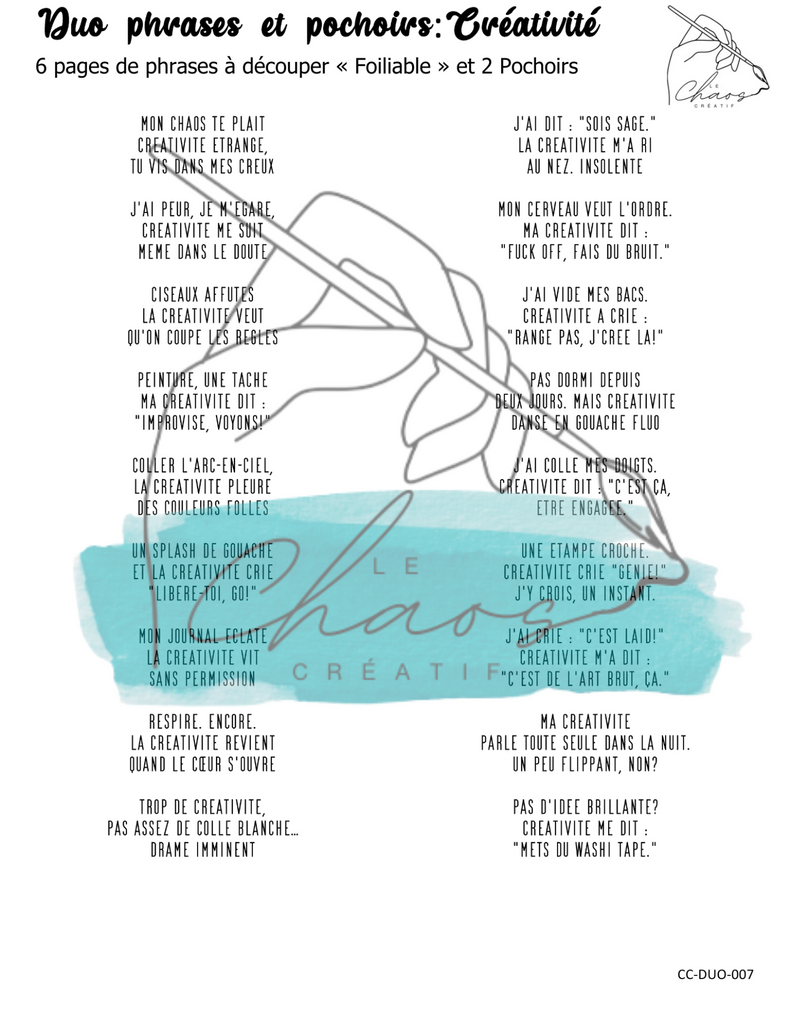 Duo phrases et pochoirs: Créativité
6 pages de phrases à découper « Foiliable » et 2 Pochoirs
LE
Chaos
CRÉATIF
MON CHAOS TE PLAIT
CREATIVITE ETRANGE,
TU VIS DANS MES CREUX
J'AI PEUR, JE M'EGARE,
CREATIVITE ME SUIT
MEME DANS LE DOUTE
CISEAUX AFFUTES
LA CREATIVITE VEUT
QU'ON COUPE LES REGLES
PEINTURE, UNE TACHE
MA CREATIVITE DIT :
"IMPROVISE, VOYONS!"
COLLER L'ARC-EN-CIEL,
LA CREATIVITE PLEURE
DES COULEURS FOLLES
UN SPLASH DE GOUACHE
ET LA CREATIVITE CRIE
"LIBERE-TOI, GO!"
MON JOURNAL ECLATE
LA CREATIVITE VIT
SANS PERMISSION
RESPIRE. ENCORE.
LA CREATIVITE REVIENT
QUAND LE CŒUR S'OUVRE
TROP DE CREATIVITE,
PAS ASSEZ DE COLLE BLANCHE...
DRAME IMMINENT
J'AI DIT : "SOIS SAGE."
LA CREATIVITE M'A RI
AU NEZ. INSOLENTE
MON CERVEAU VEUT L'ORDRE.
MA CREATIVITE DIT :
"FUCK OFF, FAIS DU BRUIT."
J'AI VIDE MES BACS.
CREATIVITE A CRIE :
"RANGE PAS, J'CREE LA!"
PAS DORMI DEPUIS
DEUX JOURS. MAIS CREATIVITE
DANSE EN GOUACHE FLUO
J'AI COLLE MES DOIGTS.
CREATIVITE DIT : "C'EST ÇA,
ETRE ENGAGEE."
UNE ETAMPE CROCHE.
CREATIVITE CRIE "GENIE!"
J'Y CROIS, UN INSTANT.
J'AI CRIE : "C'EST LAID!"
CREATIVITE M'A DIT :
"C'EST DE L'ART BRUT, ÇA."
MA CREATIVITE
PARLE TOUTE SEULE DANS LA NUIT.
UN PEU FLIPPANT, NON?
PAS D'IDEE BRILLANTE?
CREATIVITE ME DIT :
"METS DU WASHI TAPE."
LE
Chaos
CRÉATIF
CC-DUO-007